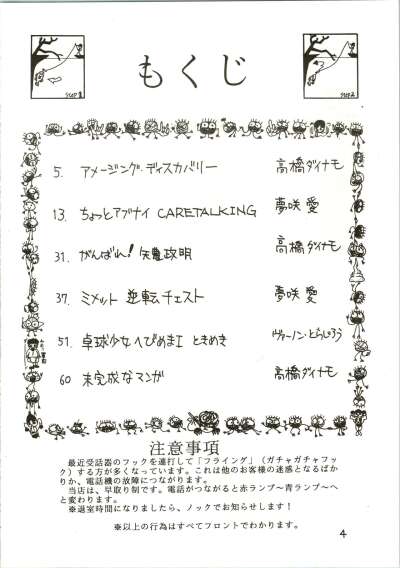 STEP 1
もくじ
STEP 2
5. アメージング・ディスカバリー 高橋ダイナモ
13. ちょっとアブナイ CARETALKING 夢咲 愛
31. がんばれ! 矢亀政明 高橋ダイナモ
37. ミメット 逆転チェスト 夢咲 愛
51. 卓球少女へびめまI ときめき ヴァーノン・どらじろう
60 未完成なマンガ 高橋ダイナモ
注意事項
最近受話器のフックを連打して「フライング」(ガチャガチャフッ
ク)する方が多くなっています。これは他のお客様の迷惑となるばか
りか、電話機の故障につながります。
当店は、早取り制です。電話がつながると赤ランプ〜青ランプ〜へ
と変わります。
※退室時間になりましたら、ノックでお知らせします!
※以上の行為はすべてフロントでわかります。
4